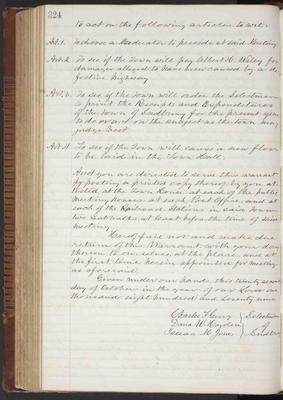 224
to act on the following articles to wit:
Art. 1. To choose a Moderator to preside at said Meeting
Art. 2. To see if the Town will pay Albert H. Wiley for
damages alleged to have been caused by a de-
fective highway
Art. 3. To see if the Town will order the Selectmen
to print the Receipts and Expenditures
of the town of Sudbury for the present year
to do or act on the subject as the town may
judge best
Art. 4. To see if the Town will cause a new floor
to be laid in the Town Hall.
And you are directed to serve this warrant
by posting a printed copy thereof by you at-
tested at the Town House, at each of the public
meeting houses, at said Post Office, and at
each of the Railroad Stations in said town
two Sabbaths at least before the time of said
meeting
Hereof fail not and make due
return of this Warrant with your doings
thereon to ourselves, at the place and at
the first time herein appointed for meeting
as aforesaid.
Given under our hands this twenty second
day of October in the year of our Lord one
thousand eight hundred and seventy nine
Selectmen
Dana W. Hayden of
Jones Sudbury